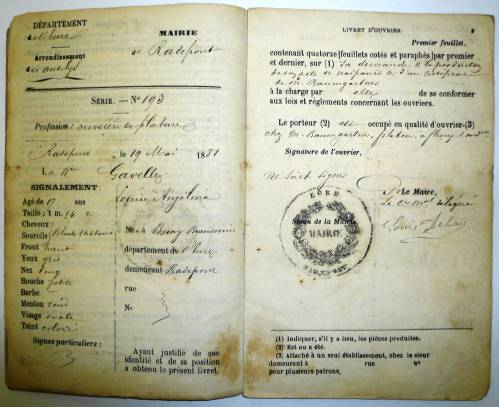 DÉPARTEMENT
de l'Eure
Arrondissement
des andelys
MAIRIE
de Radepont
SÉRIE. — N° 193
Profession: ouvrière de filature
Radepont, le 19 Mai 1881
La Née Gavelle
SIGNALEMENT:
Louise Angélina
Agé de 19 ans
Taille: 1 m. 16
Cheveux
Sourcils
Front haut
Yeux gris
Nez long
Bouche petite
Barbe
Menton rond
Visage ovale
Teint coloré
Signes particuliers:
Né à Bosny
département de l'Eure
demeurant Radepont
rue
N°
Ayant justifié de son
identité et de sa position
a obtenu le présent livret.
LIVRET D'OUVRIER. 9
Premier feuillet.
contenant quatorze feuillets cotés et paraphés par premier
et dernier, sur (1) sa demande & la production
de son acte de naissance & d'un certificat
de M. Baumgartner
à la charge par elle de se conformer
aux lois et réglements concernant les ouvriers.
Le porteur (2) est occupé en qualité d'ouvrier (3)
chez M. Baumgartner, filateur, à fleury
Signature de l'ouvrier.
Ne sait signer
Le Maire,
Sceau de la Mairie
EURE
MAIRIE
RADEPONT
(1) Indiquer, s'il y a lieu, les pièces produites.
(2) Est ou a été.
(3) Attaché à un seul établissement, chez le sieur
demeurant à rue n°
pour plusieurs patrons,